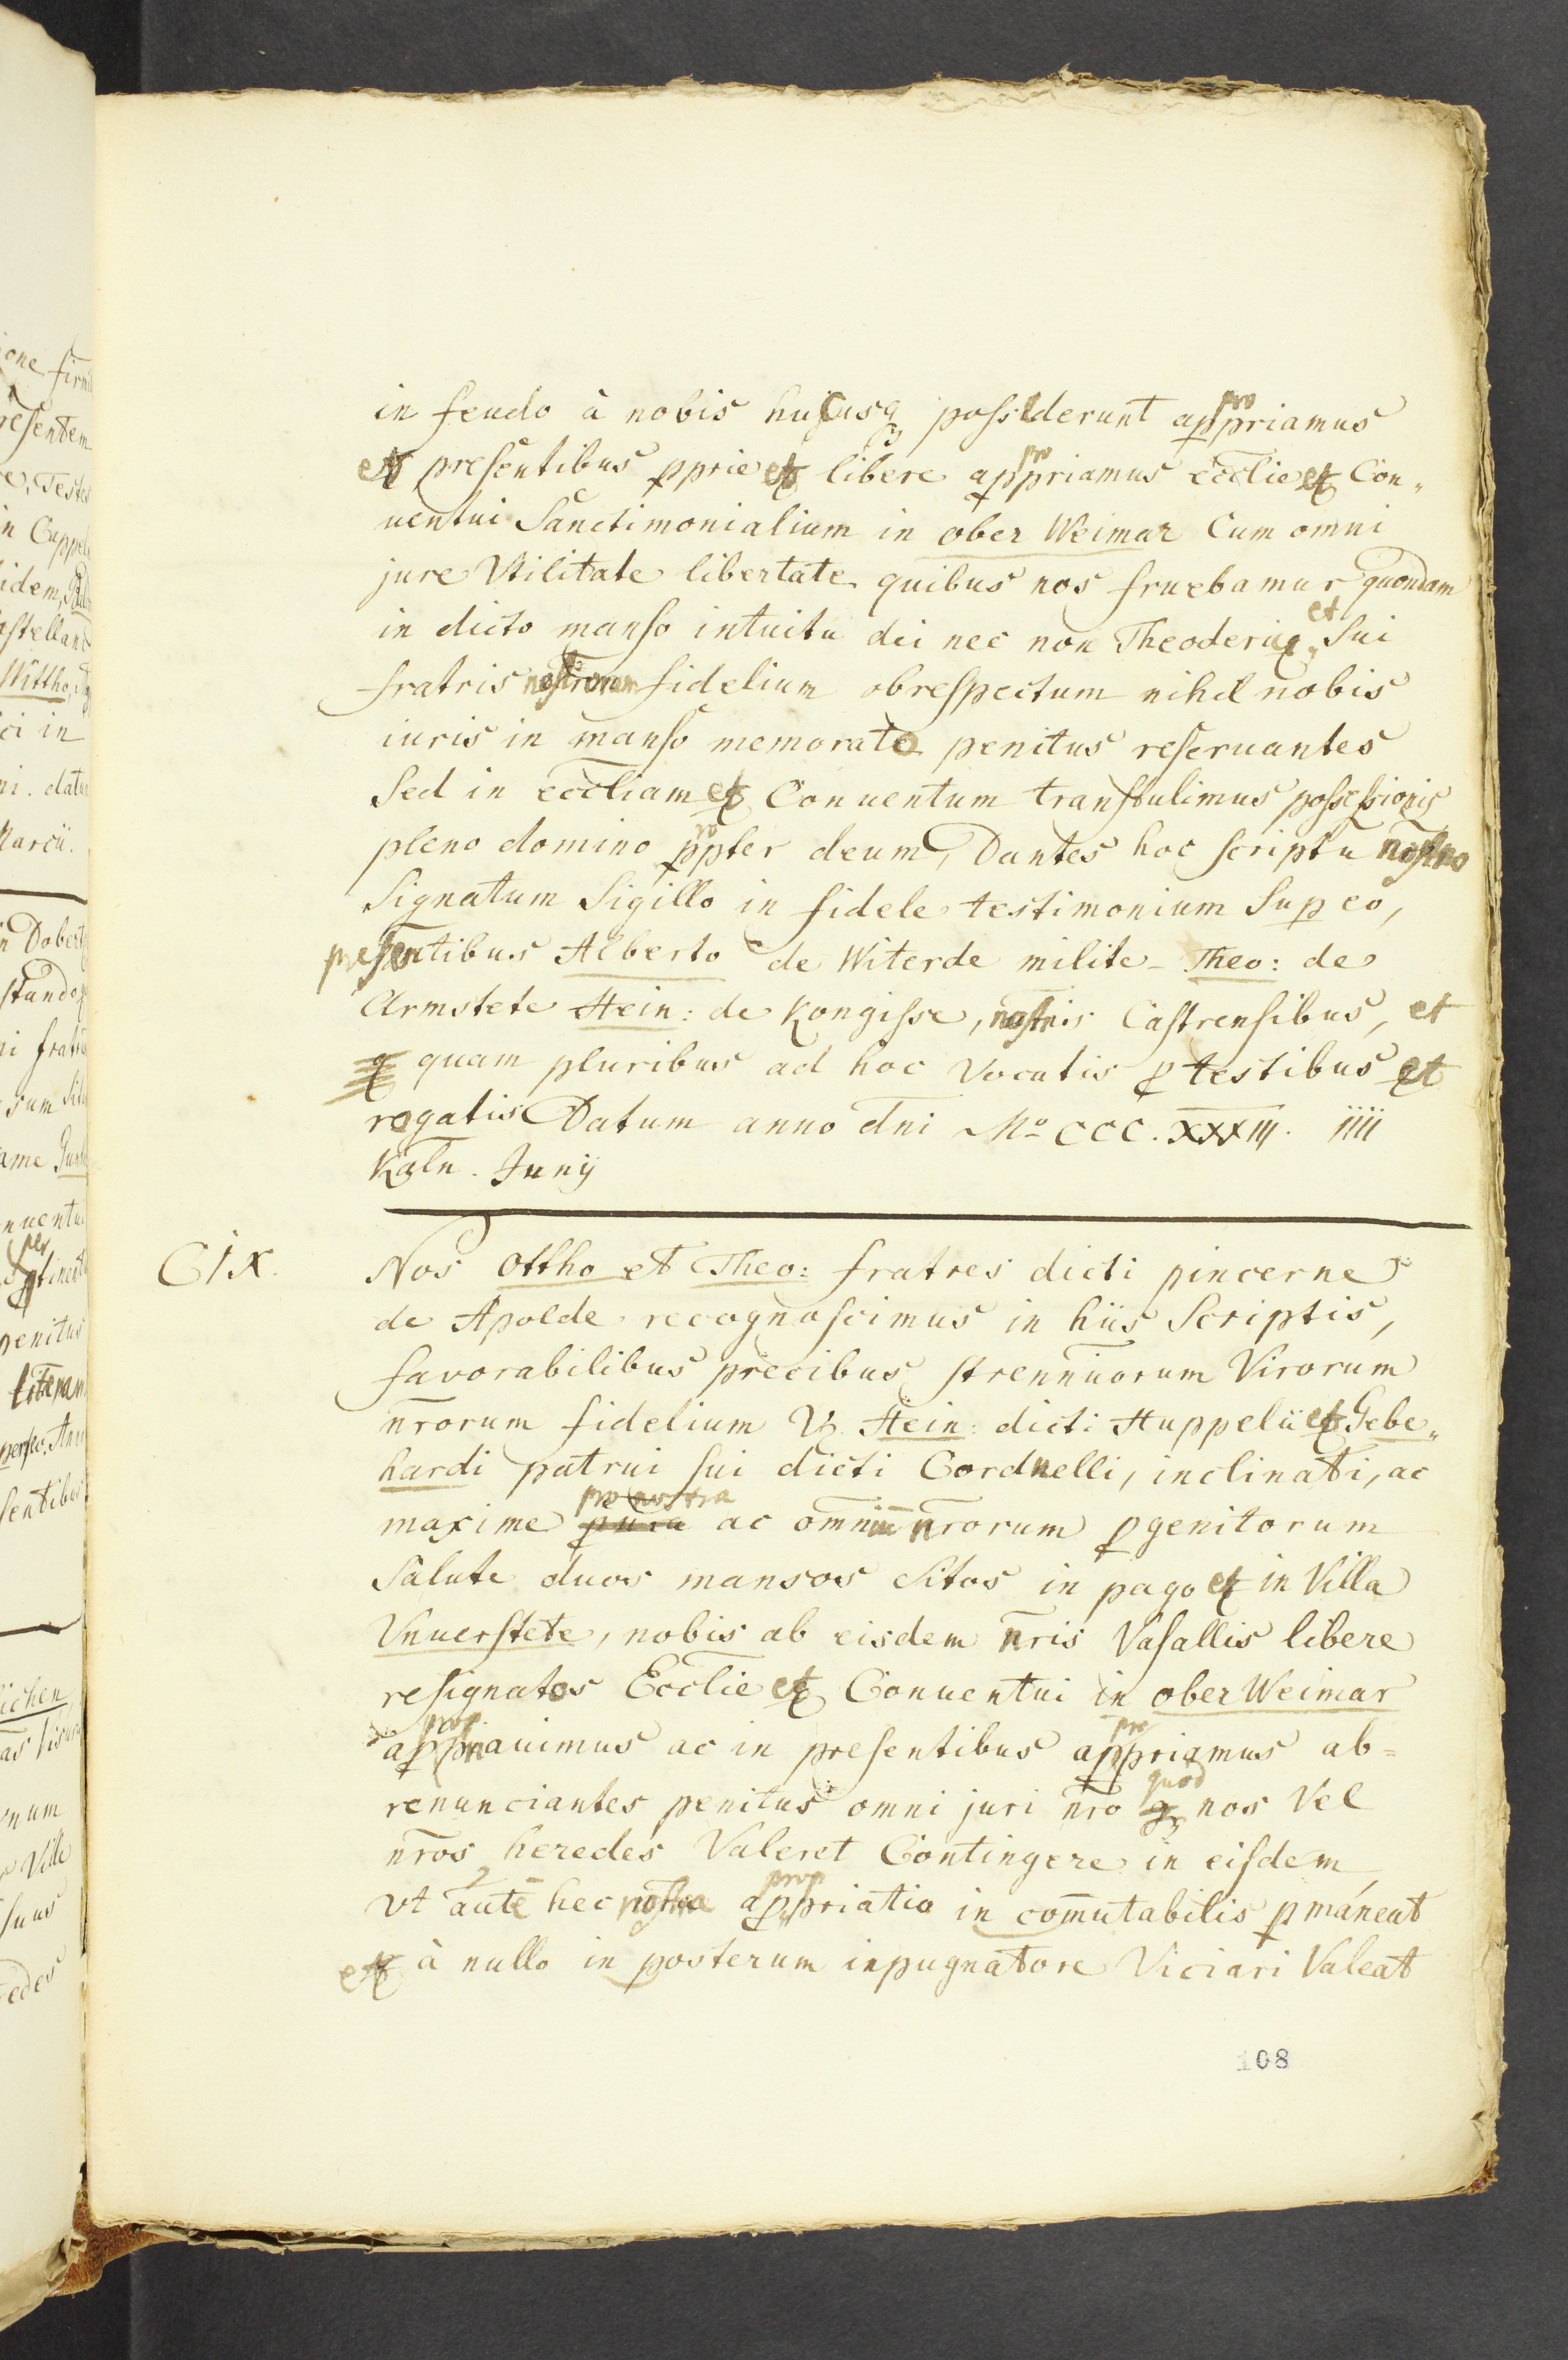 in feudo à nobis huſcusq possiderunt appropriamus
et presentibus pprie et libere appropriamus ecclie et Con„
uentui Sanctimonialium in ober Weimar Cum omni
jure Vtilitate libertate quibus nos fruebamur quondam
in dicto manſo intuitu dei nec non Theoderici et Sui
fratris nostrorum fidelium obreſpectum nihil nobis
iuris in manſo memorato penitus reſeruantes
Sed in eccliam et Conuentum tranſtulimus poſseſsionis
pleno domino propter deum, Dantes hoc ſcriptū nostro
Signatum Sigillo in fidele testimonium Sup eo,
preſentibus Alberto de Witerde milite Theo: de
Armstete Hein: de Kongiſse, nostris Caſtrenſibus, et
quam pluribus ad hoc Vocatis p testibus et
rogatis Datum anno dni Mo CCC. XXXIII. IIII
Kaln. Junÿ
CIX.
Nos Ottho et Theo: fratres dicti pincerne
de Apolde recognoſcimus in hiis Scriptis,
favorabilibus precibus strennuorum Virorum
nrorum fidelium Hein: dicti Huppelii et Gebe„
hardi patrui ſui dicti Cordnelli, inclinati, ac
maxime pura pro nostra ac omniū nrorum pgenitorum
Salute duos mansos Sitos in pago et in Villa
Vnuerſtete, nobis ab eisdem nris Vaſallis libere
reſignatos Ecclie et Conuentui in ober Weimar
appropriauimus ac in preſentibus appropriamus ab=
renunciantes penitus omni juri nro quod nos Vel
nros heredes Valeret Contingere in eiſdem,
vt autē hec nostra appropriatio in com̄utabilis pmáneat
et à nullo in posterum inpugnatore Viciari Valeat
108